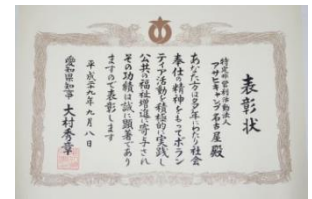 表彰状
特定非営利活動法人
アサヒキャング名古屋 殿
あなた方は多年にわたり社会
奉仕の精神をもってボラン
ティア活動を積極的に実践し
公共の福祉増進に寄与され
その功績は誠に顕著であり
ますので表彰します
平成二十九年九月八日
愛知県知事 大村秀章